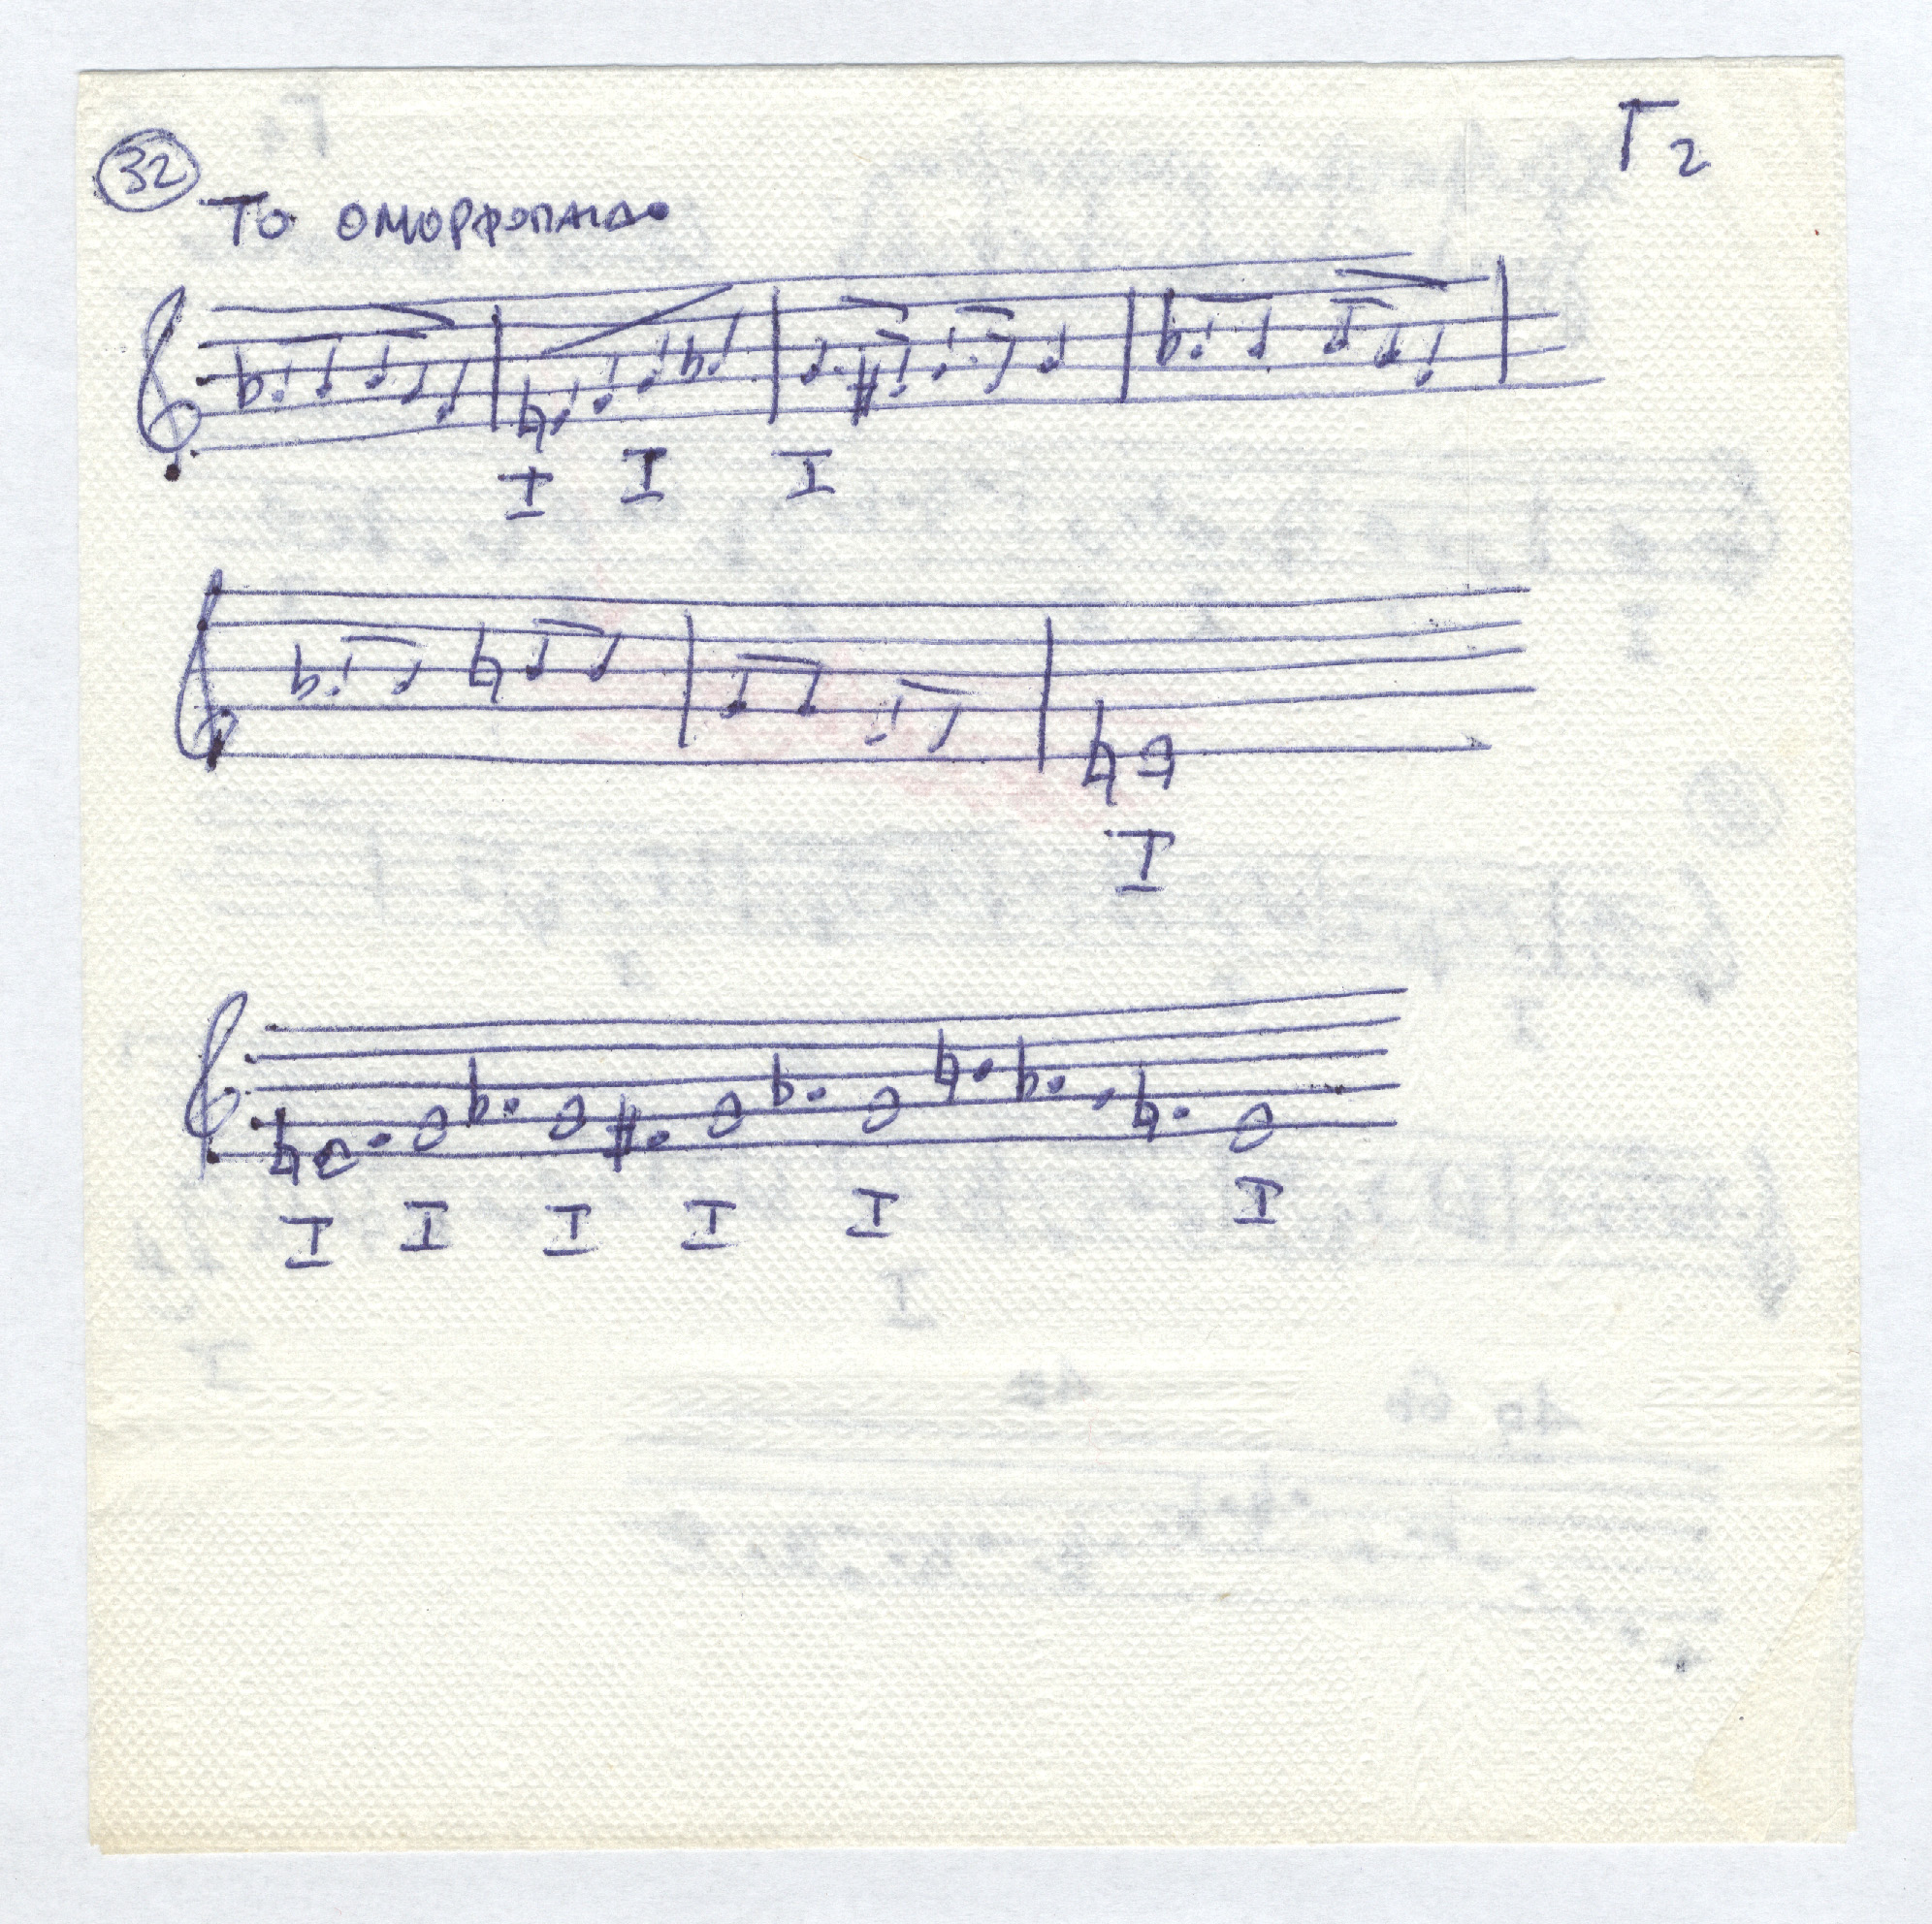 Γ2
32
ΤΟ ΟΜΟΡΦΟΠΑΙΔΟ
I I I
I
I I I I I I